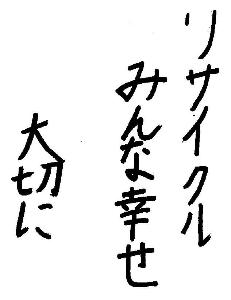 リサイクル
みんな幸せ
大切に